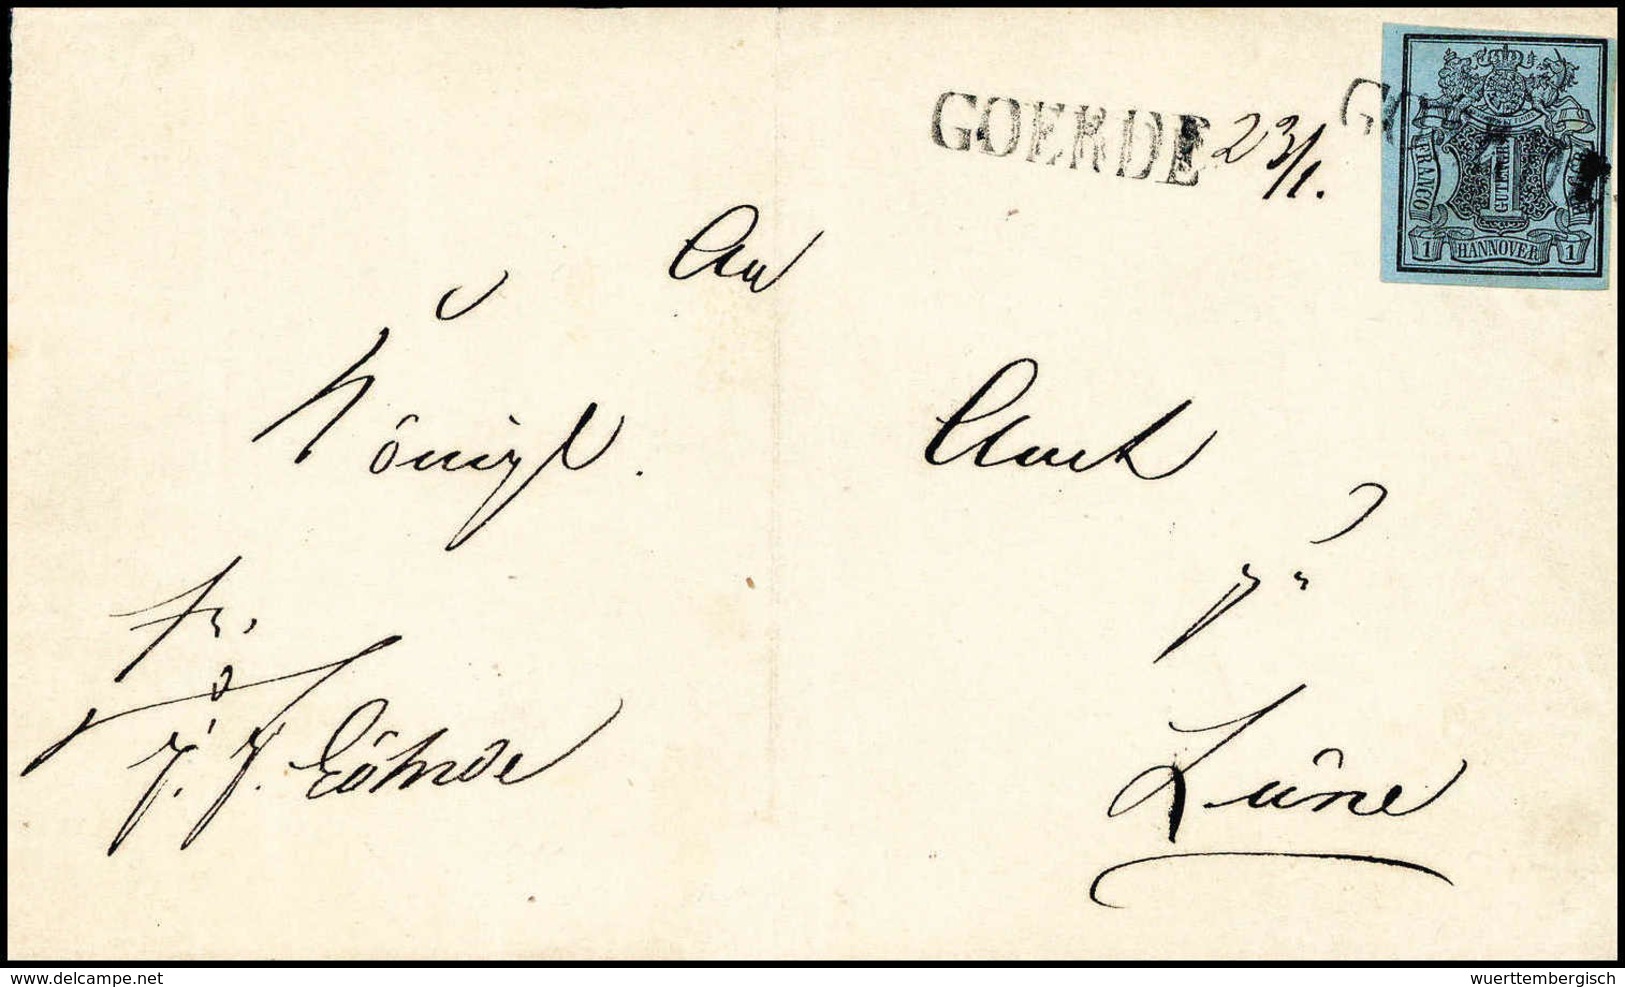 GOERDE 23/1.
FRANCO
1 GUTENGR.
1 HANNOVER 1
An
Königl. Amt
zu
Lüne
fr.
delcampe.net
wuerttembergisch